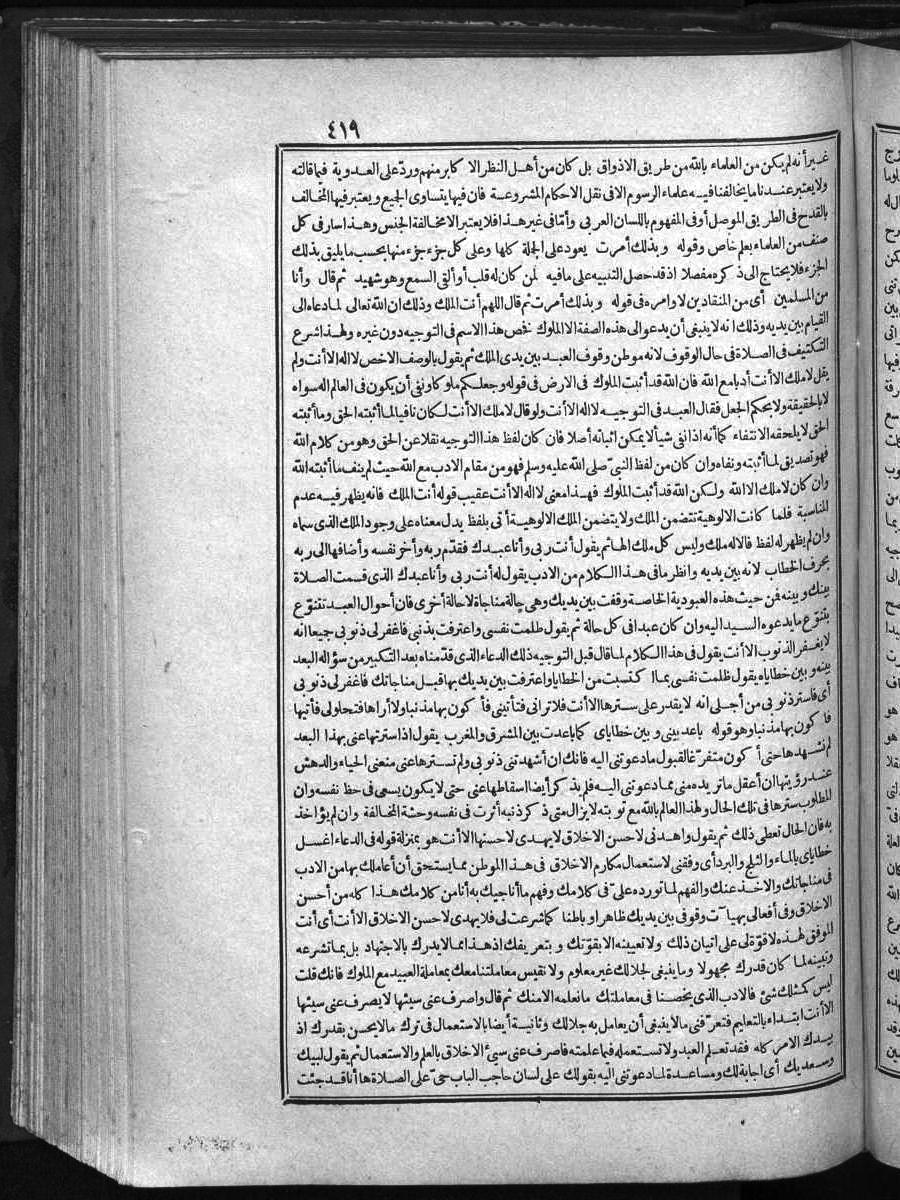 ٤١٩
غير أنه لم يكن من العلماء بالله من طريق الاذواق بل كان من أهل النظر الا كابر منهم ورد على العدوية فيما قالته
ولا يعتبر عندنا ما يخالفنا فيه علماء الرسوم الا فى نقل الاحكام المشروعة فان فيها يتساوى الجميع ويعتبر فيها المخالف
بالقدح فى الطريق الموصل أو فى المفهوم باللسان العربى وأما فى غير هذا فلا يعتبر الا مخالفة الجنس وهذا سار فى كل
صنف من العلماء بعلم خاص وقوله وبذلك أمرت يعود على الجملة كلها وعلى كل جزء جزء منها بحسب ما يليق بذلك
الجزء فلا يحتاج الى ذكره مفصلا اذ قد حصل التنبيه على مافيه لمن كان له قلب أو ألقى السمع وهو شهيد ثم قال وأنا
من المسلمين أى من المنقادين لاوامره فى قوله وبذلك أمرت ثم قال اللهم أنت الملك وذلك ان الله تعالى لما دعاه الى
القيام بين يديه وذلك انه لا ينبغى أن يدعو الى هذه الصفة الا الملوك خص هذا الاسم فى التوجيه دون غيره ولهذا شرع
التكتيف فى الصلاة فى حال الوقوف لانه موطن وقوف العبد بين يدى الملك ثم يقول بالوصف الاخص لا اله الا أنت ولم
يقل لا ملك الا أنت أدبا مع الله فان الله قد أثبت الملوك فى الارض فى قوله وجعلكم ملوكا ونفى أن يكون فى العالم اله سواه
لا بالحقيقة ولا بحكم الجعل فقال العبد فى التوجيه لا اله الا أنت ولو قال لا ملك الا أنت لكان نافيا لما أثبته الحق وما أثبته
الحق لا يلحقه الانتفاء كما أنه اذا نفى شيأ لا يمكن اثباته أصلا فان كان لفظ هذا التوجيه نقلا عن الحق وهو من كلام الله
فهو تصديق لما أثبته ونفاه وان كان من لفظ النبى صلى الله عليه وسلم فهو من مقام الادب مع الله حيث لم ينف ما أثبته الله
وان كان لا ملك الا الله ولكن الله قد أثبت الملوك فهذا معنى لا اله الا أنت عقيب قوله أنت الملك فانه يظهر فيه عدم
المناسبة فلما كانت الالوهية تتضمن الملك ولا يتضمن الملك الالوهية أتى بلفظ يدل معناه على وجود الملك الذى سماه
وان لم يظهر له لفظ فالاله ملك وليس كل ملك الها ثم يقول أنت ربى وأنا عبدك فقدم ربه وأخر نفسه وأضافها الى ربه
بحرف الخطاب لانه بين يديه وانظر ما فى هذا الكلام من الادب يقول له أنت ربى وأنا عبدك الذى قسمت الصلاة
بينك وبينه فمن حيث هذه العبودية الخاصة وقفت بين يديك وهى حالة مناجاة لا حالة أخرى فان أحوال العبد تتنوع
بتنوع ما يدعوه السيد اليه وان كان عبدا فى كل حالة ثم يقول ظلمت نفسى واعترفت بذنبى فاغفر لى ذنوبى جميعا انه
لا يغفر الذنوب الا أنت يقول فى هذا الكلام لما قال قبل التوجيه ذلك الدعاء الذى قدمناه بعد التكبير من سؤاله البعد
بينه وبين خطاياه يقول ظلمت نفسى بما اكتسبت من الخطايا واعترفت بين يديك بها قبل مناجاتك فاغفر لى ذنوبى
أى فاستر ذنوبى من أجلى انه لا يقدر على سترها الا أنت فلا ترانى فتأتينى فأكون بها مذنبا ولا أراها فتحاولى فأتيها
فا كون بها مذنبا وهو قوله باعد بينى وبين خطاياى كما باعدت بين المشرق والمغرب يقول اذا سترتها عنى بهذا البعد
لم نشهدها حتى أكون متفرغا لقبول ما دعوتنى اليه فانك ان أشهدتنى ذنوبى ولم تسترها عنى منعنى الحياء والدهش
عند رؤيتها ان أعقل ما تريده منى مما دعوتنى اليه فلم يذكر أيضا اسقاطها عنى حتى لا يكون يسعى فى حظ نفسه وان
المطلوب سترها فى تلك الحال ولهذا العالم بالله مع توبته لا يزال متى ذكر ذنبه أثرت فى نفسه وحشة المخالفة وان لم يؤاخذ
به فان الحال تعطى ذلك ثم يقول واهدنى لاحسن الاخلاق لا يهدى لاحسنها الا أنت هو بمنزلة قوله فى الدعاء اغسل
خطاياى بالماء والثلج والبرد أى وفقنى لاستعمال مكارم الاخلاق فى هذا الموطن مما يستحق أن أعاملك بها من الادب
فى مناجاتك والاخذ عنك والفهم لما تورده على فى كلامك وفهم ما أناجيك به أنا من كلامك هذا كله من أحسن
الاخلاق وفى أفعالى بهيآت وقوفى بين يديك ظاهرا وباطنا كما شرعت لى فلا يهدى لاحسن الاخلاق الا أنت أى أنت
الموفق لهذه لا قوة لى على اتيان ذلك ولا تعيينه الا بقوتك وبتعريفك اذ هذا مما لا يدرك بالاجتهاد بل بما تشرعه
وتبينه لما كان قدرك مجهولا وما ينبغى لجلالك غير معلوم ولا نقيس معاملتنا معك بمعاملة العبيد مع الملوك فانك قلت
ليس كمثلك شئ فالادب الذى يخصنا فى معاملتك ما نعلمه الا منك ثم قال واصرف عنى سيئها لا يصرف عنى سيئها
الا أنت ابتداء بالتعليم فتعرفنى ما لا ينبغى أن يعامل به جلالك وثانية أيضا بالاستعمال فى ترك ما لا يحسن بقدرك اذ
بيدك الامر كله فقد تعلم العبد ولا تستعمله فيما علمته فاصرف عنى سيئ الاخلاق بالعلم والاستعمال ثم يقول لبيك
وسعديك أى اجابة لك ومساعدة لما دعوتنى اليه بقولك على لسان حاجب الباب حى على الصلاة ها أنا قد جئت